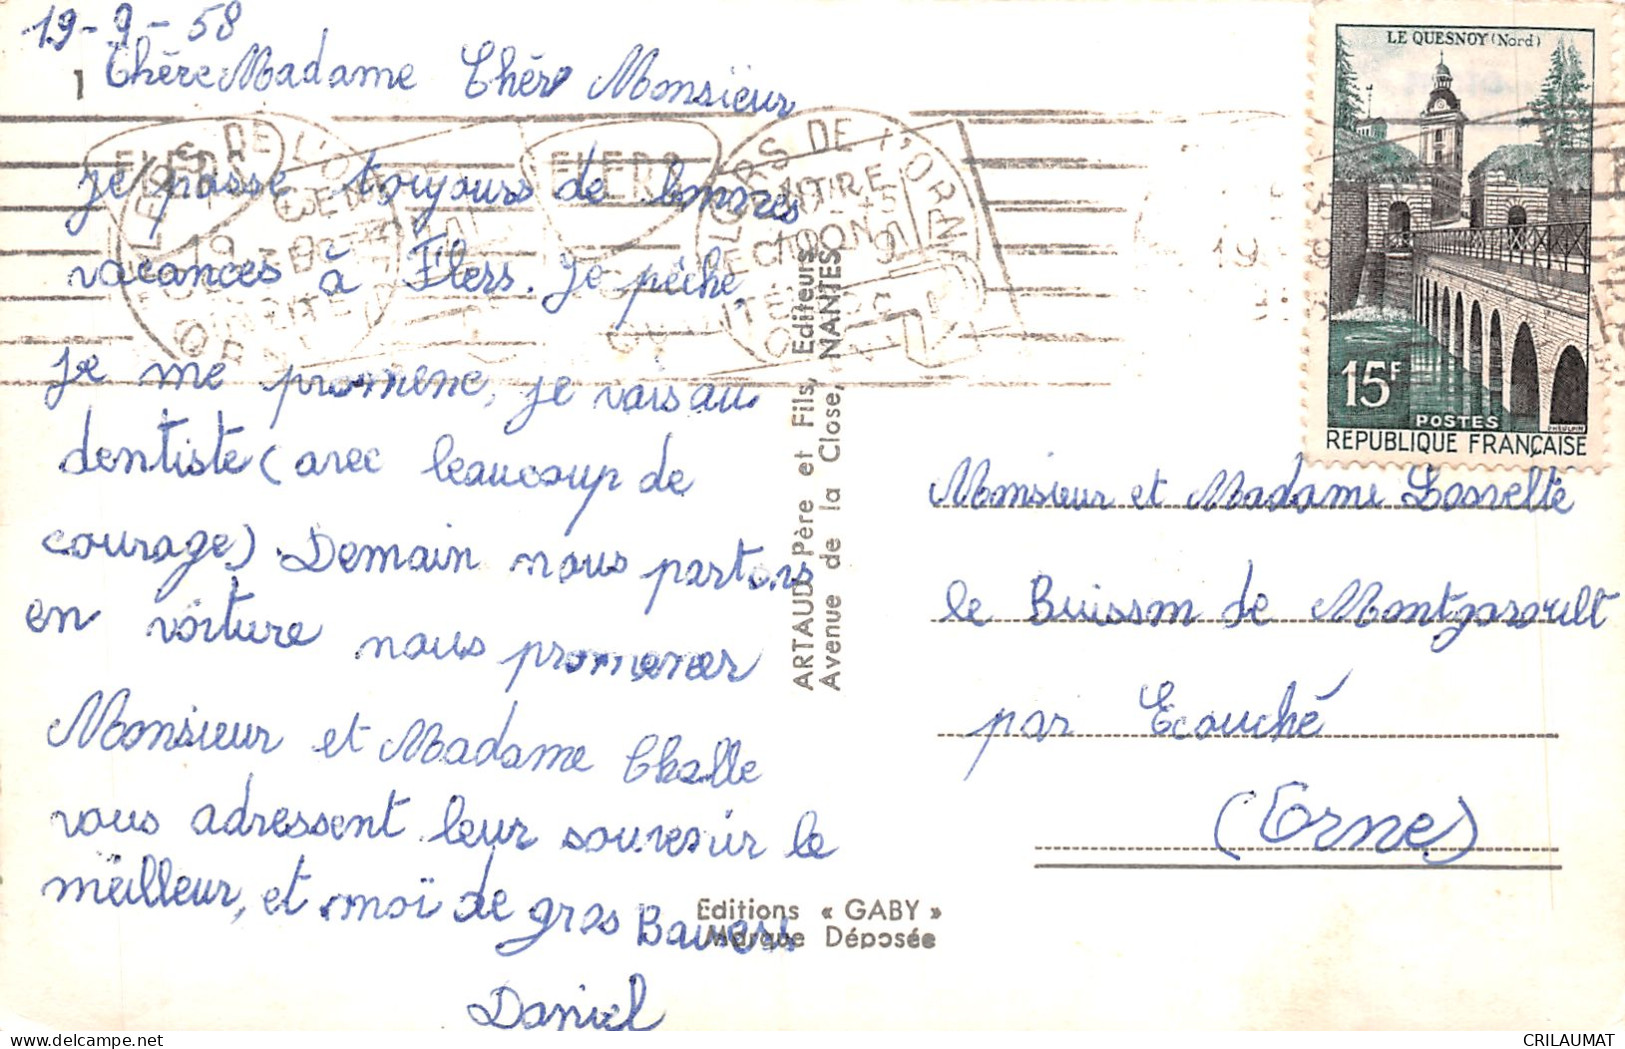 19-9-58
Chère Madame Chèr Monsïeur
je passe toujours de bonnes
vacances à Flers. Je pêche,
je me promène, je vais au
dentiste (avec beaucoup de
courage). Demain nous partons
en voiture nous promener
Monsieur et Madame Challe
vous adressent leur souvenir le
meilleur, et moï de gros Baisers
Daniel
ARTAUD Père et Fils, Editeurs
Avenue de la Close, NANTES
Editions « GABY »
Marque Déposée
LE QUESNOY (Nord)
15F
POSTES
REPUBLIQUE FRANÇAISE
FLERS DE L'ORNE
FLERS
Monsieur et Madame
le Buisson de Montgaroult
par Ecouché
(Orne)
CRILAUMAT